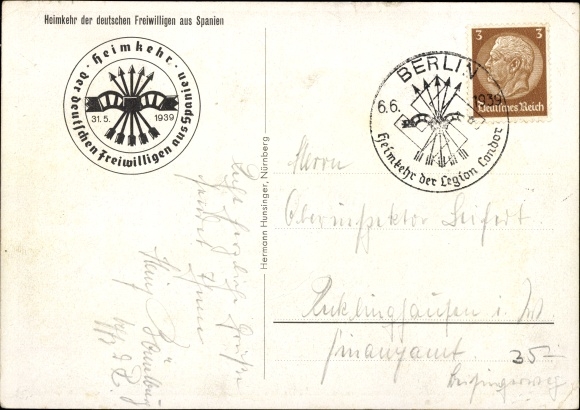 Heimkehr der deutschen Freiwilligen aus Spanien
· Heimkehr · der deutschen Freiwilligen aus Spanien
31.5. 1939
BERLIN
6.6. 1939
Heimkehr der Legion Condor
3 3
Deutsches Reich
Hermann Hunsinger, Nürnberg
Herrn
Oberinspektor Seifert
Recklinghausen i. W.
Finanzamt
35
herzliche Grüße
sendet Ihnen